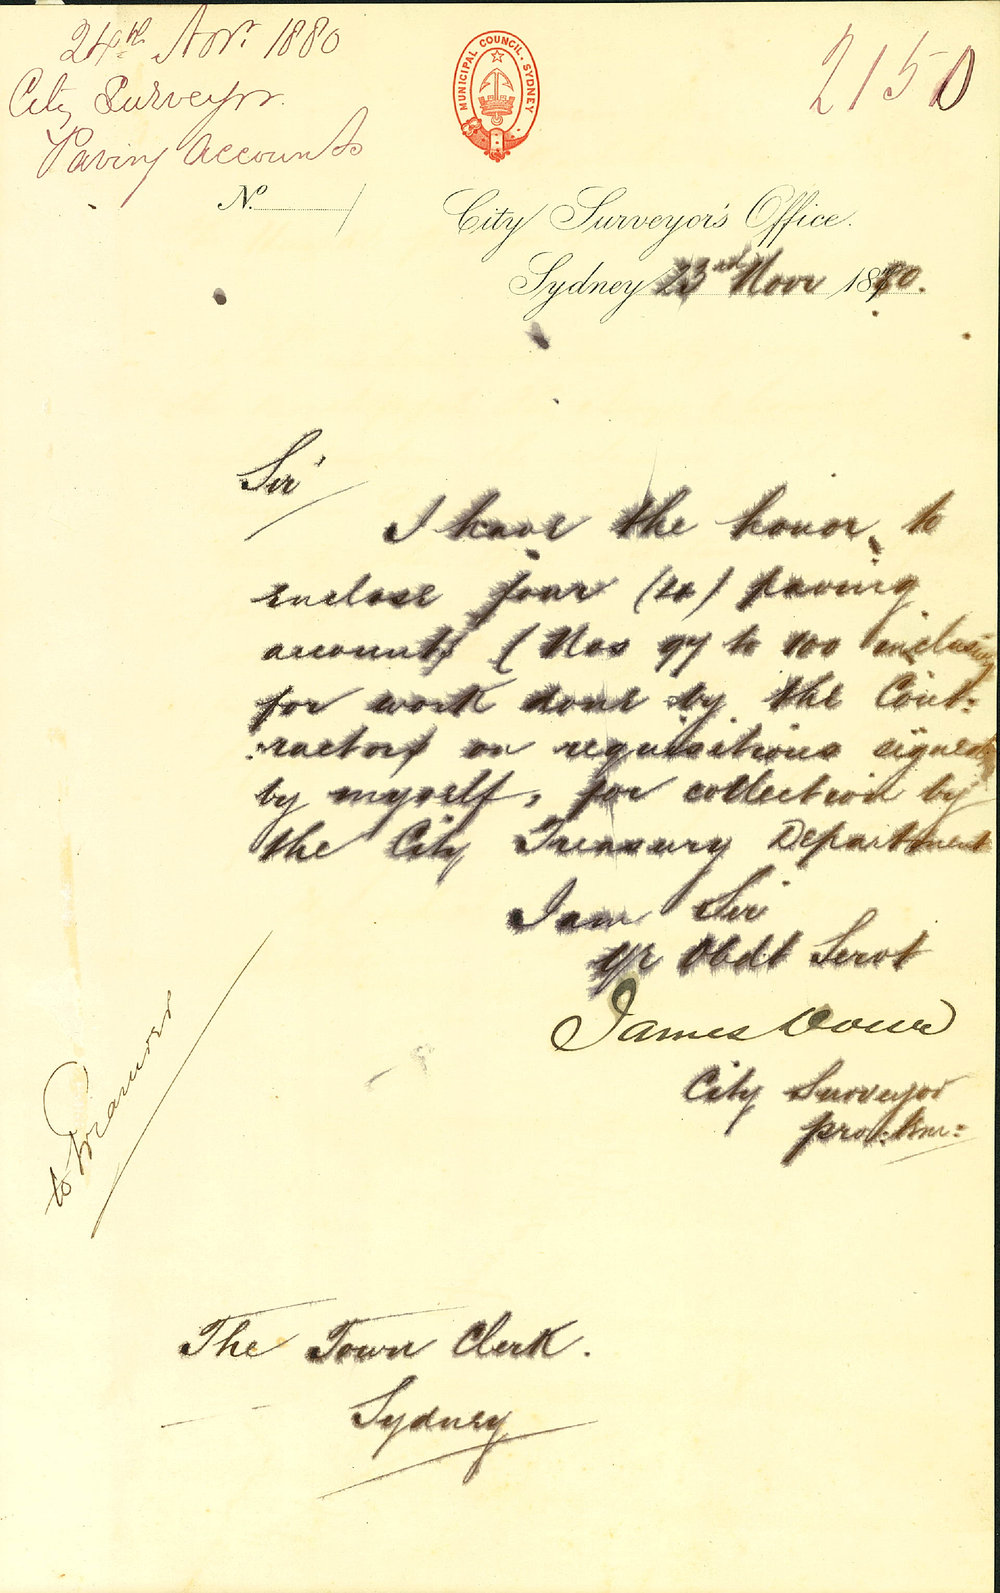 24th Novr 1880
City Surveyor.
Paving Accounts
2150
MUNICIPAL COUNCIL. SYDNEY
No.
City Surveyor's Office.
Sydney 23rd Novr 1880.
Sir
I have the honor to
enclose four (4) paving
accounts (Nos 97 to 100 inclusive
for work done by the Cont=
ractors on requisitions signed
by myself, for collection by
the City Treasury Department
I am Sir
Yr Obdt Servt
James
City Surveyor
pro: tem:
to
The Town Clerk.
Sydney